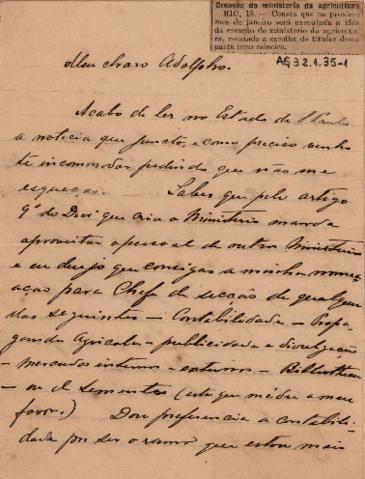 Creação do ministerio da agricultura
RIO, 18. — Consta que no proximo
mez de janeiro será executada a idéa
da creação do ministerio da agricultu-
ra, recaindo a escolha do titular desta
pasta num mineiro.
AG 32.1.35-1
Meu charo Adolpho.
Acabo de ler no Estado de S. Paulo
a noticia que juncto, e como preciso venho
te incommodar pedindo que não me
esqueças. Sabes que pelo artigo
9º do Decº que cria o Ministerio manda
aproveitar o pessoal de outros Ministerios
e eu desejo que consigas a minha nome-
ação para Chefe de secção de qualquer
das seguintes — Contabilidade — Propa-
ganda Agricola — publicidade e divulgação
— mercados internos — externos — Bibliotheca
— ou de sementes (este que me dê a meu
favor.) Dou preferencia a contabili-
dade por ser o ramo que estou mais